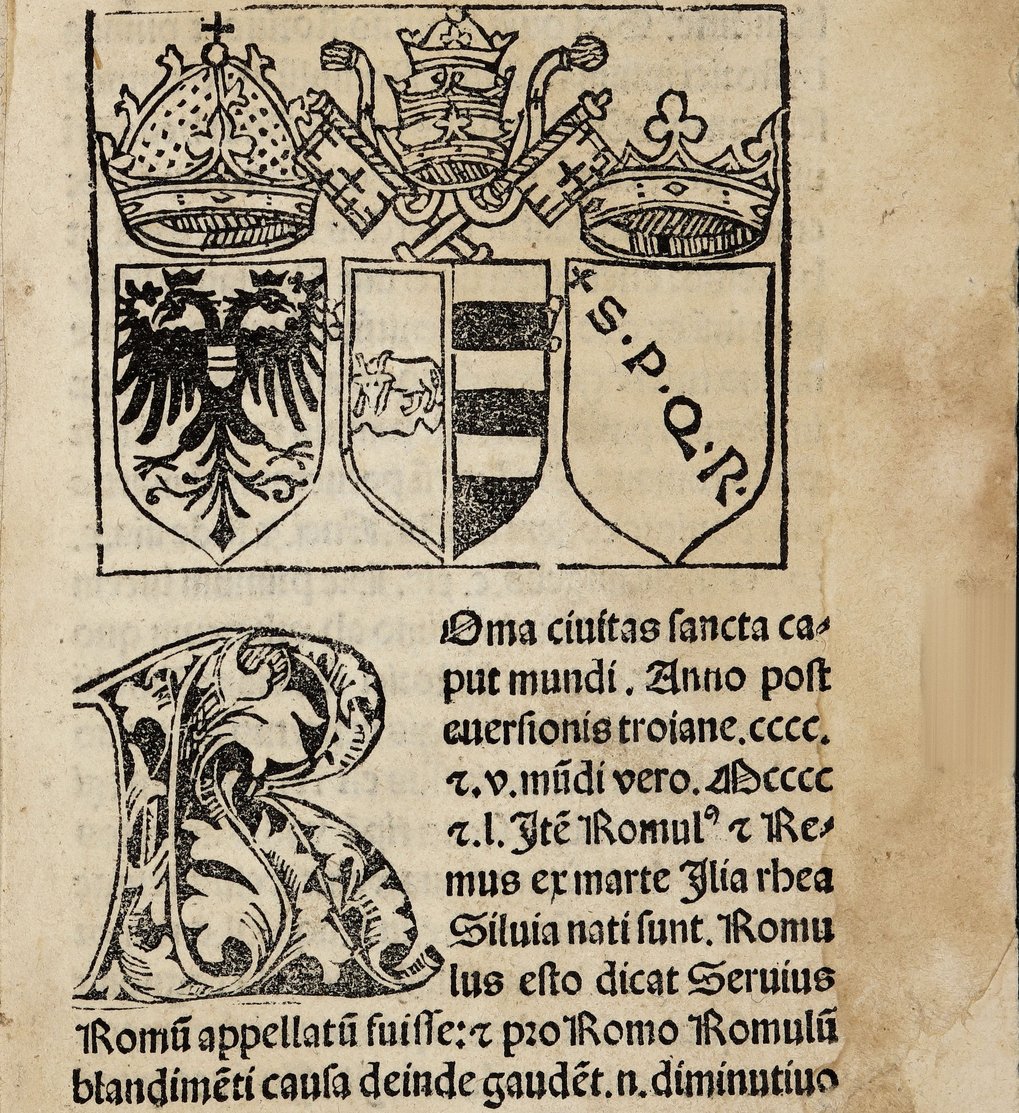 S.P.Q.R.
Roma ciuitas sancta ca⸗
put mundi. Anno post
euersionis troiane.cccc.
⁊.v.mūdi vero.Mcccc
⁊.l. Jtē Romulꝰ ⁊ Re⸗
mus ex marte Jlia rhea
Siluia nati sunt. Romu
lus esto dicat Seruius
Romū appellatū fuisse:⁊ pro Romo Romulū
blandimēti causa deinde gaudēt.n.diminutiuo